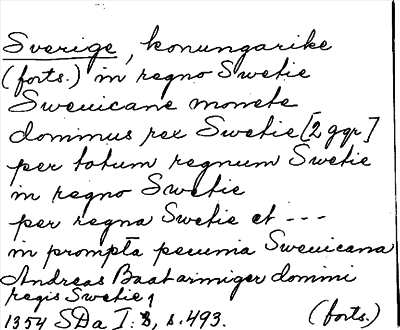 Sverige, konungarike
(forts.) in regno Swetie
Sweuicane monete
dominus rex Swetie [2 ggr]
per totum regnum Swetie
in regno Swetie
per regna Swetie et ---
in prompta pecunia Sweuicana
Andreas Baat armiger domini
regis Swetie,
1354 SDa I:3, s. 493. (forts.)